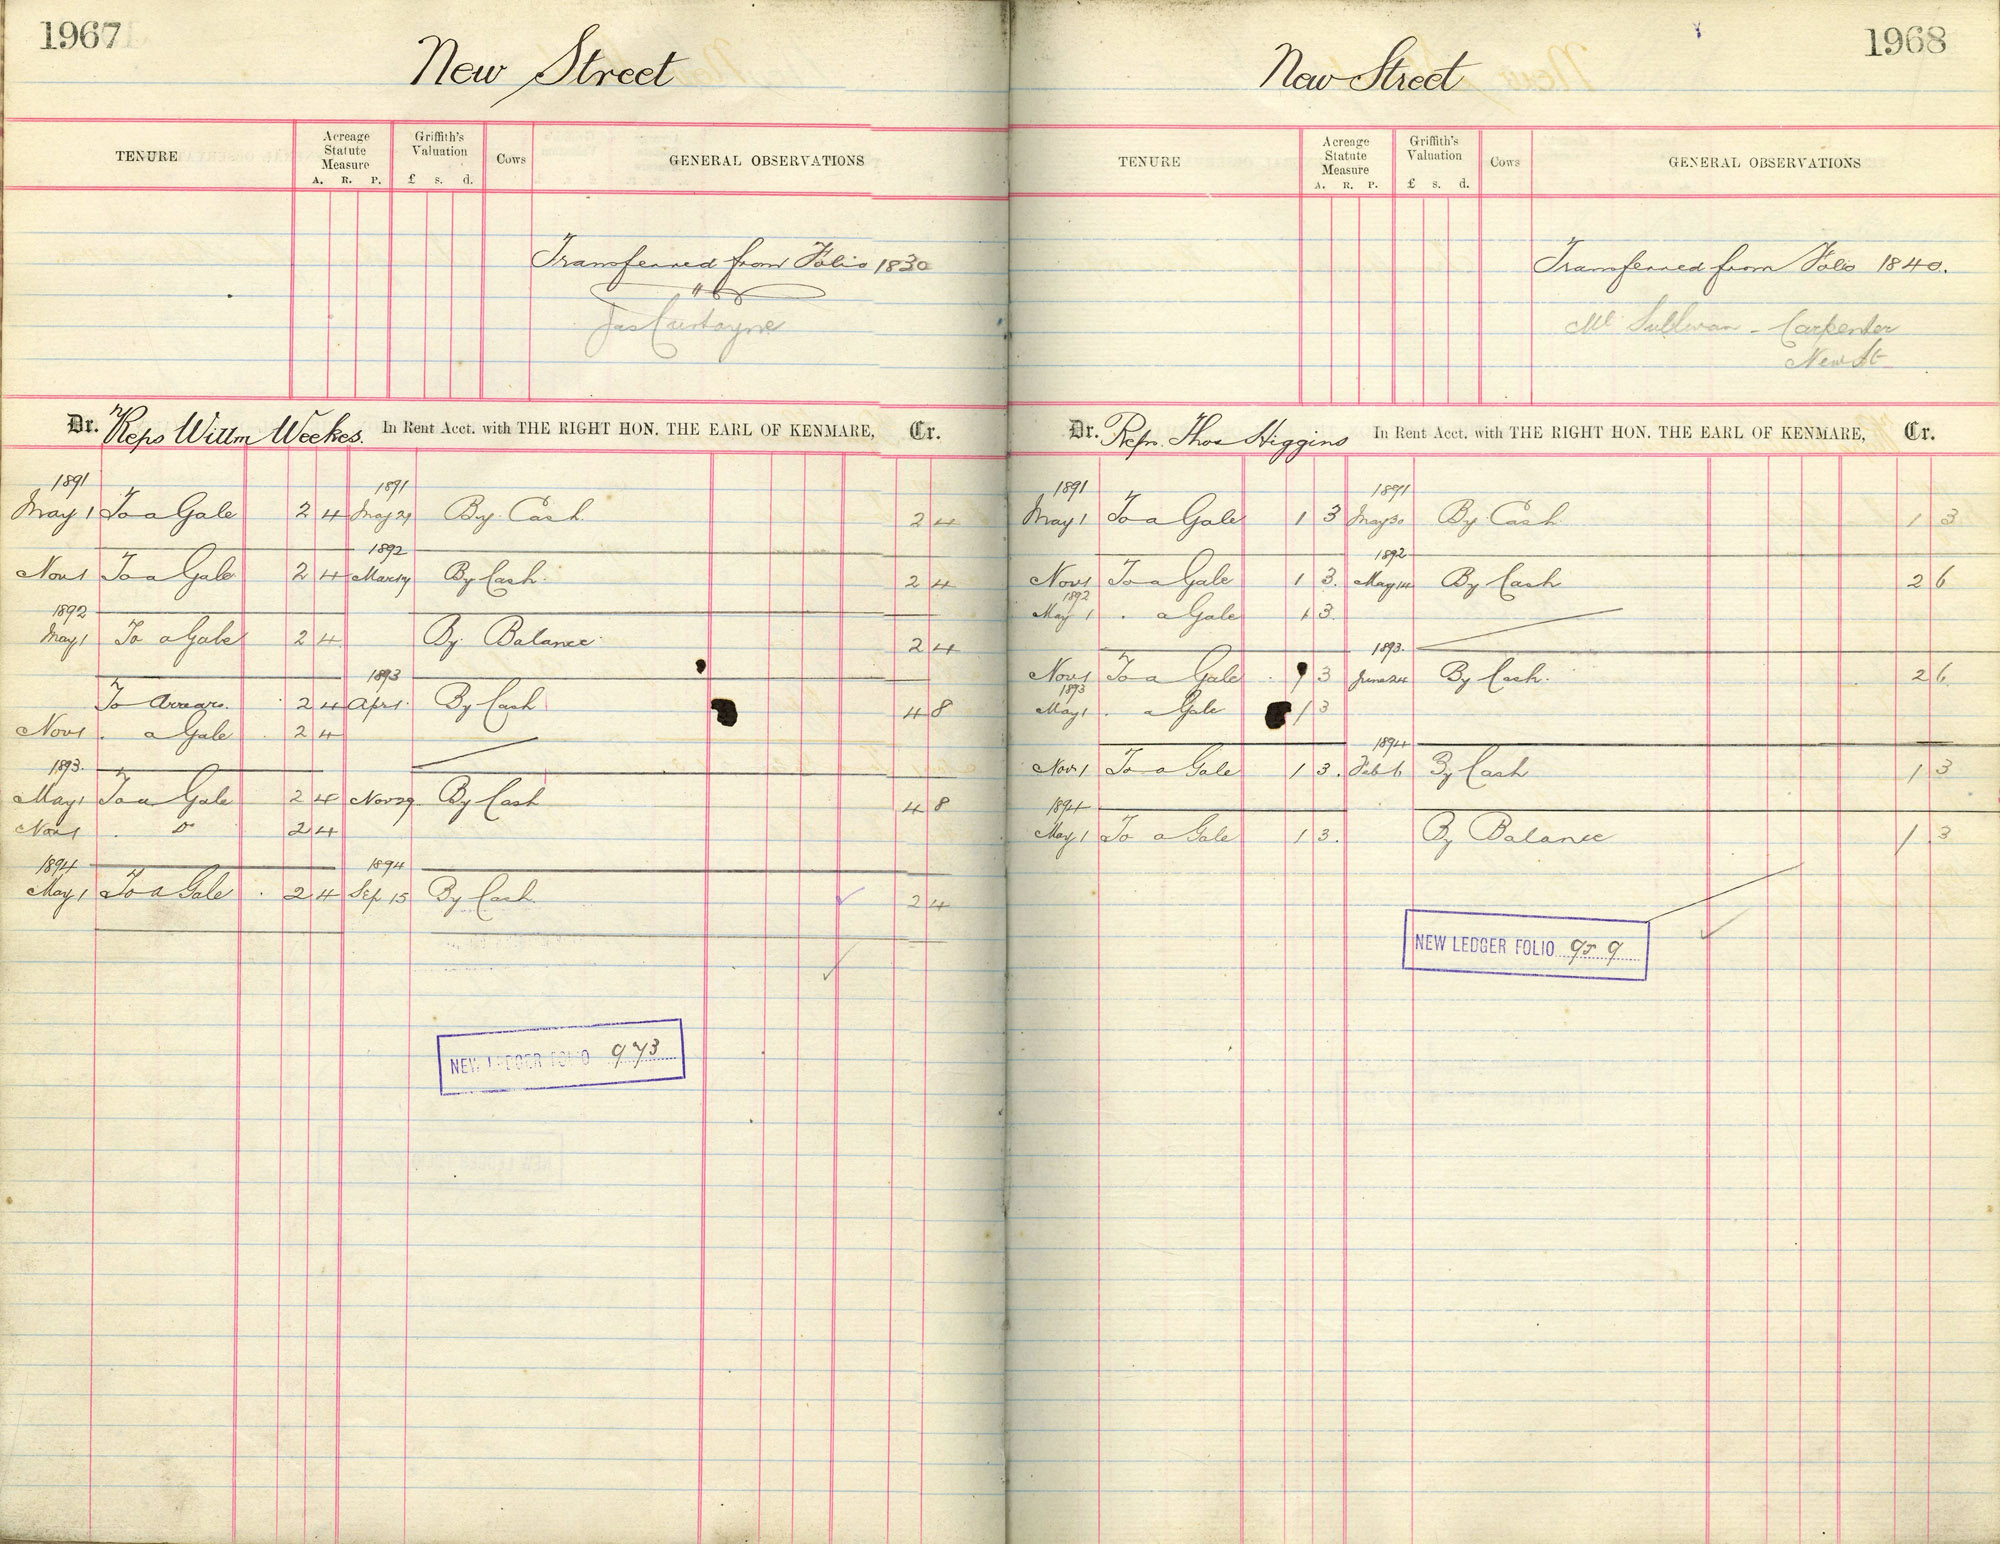 1967
New Street
TENURE
Acreage Statute Measure
A. R. P.
Griffith's Valuation
£ s. d.
Cows
GENERAL OBSERVATIONS
Transferred from Folio 1830
Dr. Reps Willm Weekes. In Rent Acct. with THE RIGHT HON. THE EARL OF KENMARE, Cr.
1891 1891
May 1 To a Gale 2 4 May 21 By Cash 2 4
1892
Nov 1 To a Gale 2 4 Mar 19 By Cash. 2 4
1892
May 1 To a Gale 2 4 By Balance 2 4
1893
To Arrears. 2 4 Apr 1 By Cash 4 8
Nov 1 . a Gale 2 4
1893.
May 1 To a Gale 2 4 Nov 29 By Cash 4 8
Nov 1 . Do 2 4
1894 1894
May 1 To a Gale 2 4 Sep 15 By Cash 2 4
NEW LEDGER FOLIO 973
1968
New Street
TENURE
Acreage Statute Measure
A. R. P.
Griffith's Valuation
£ s. d.
Cows
GENERAL OBSERVATIONS
Transferred from Folio 1840.
Sullivan - Carpenter
New St
Dr. Repr. Thos Higgins In Rent Acct. with THE RIGHT HON. THE EARL OF KENMARE, Cr.
1891 1891
May 1 To a Gale 1 3 May 30 By Cash 1 3
1892
Nov 1 To a Gale 1 3. May 14 By Cash 2 6
1892
May 1 . a Gale 1 3.
1893.
Nov 1 To a Gale 1 3 June 24 By Cash. 2 6
1893
May 1 . a Gale 1 3
1894
Nov 1 To a Gale 1 3. Feb 6 By Cash 1 3
1894
May 1 To a Gale 1 3. By Balance 1 3
NEW LEDGER FOLIO 959